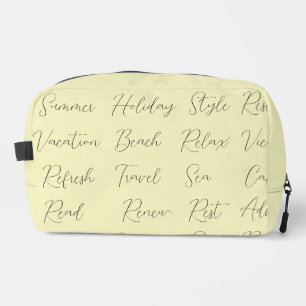 Summer Holiday Style Res
Vacation Beach Relax Vie
Refresh Travel Sea Ca
Read Renew Rest Ad